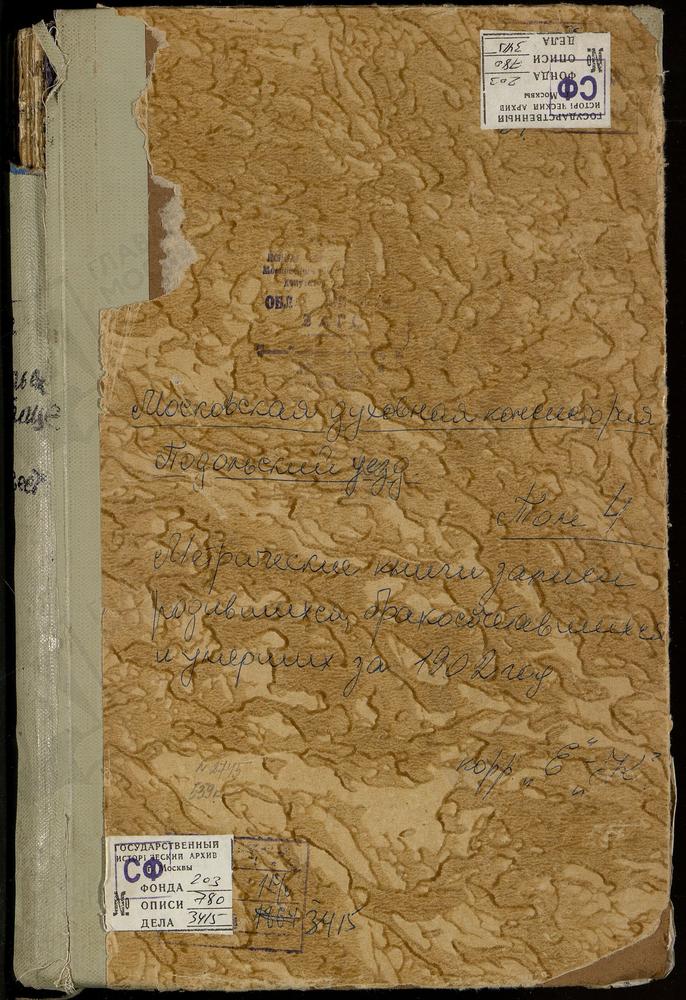 ГОСУДАРСТВЕННЫЙ
ИСТОРИЧЕСКИЙ АРХИВ
Москвы
СФ
№
ФОНДА 203
ОПИСИ 780
ДЕЛА 3415
ОБЛ
Московская духовная консистория
Подольский уезд
Том 4
Метрические книги записи
родившихся, бракосочетавшихся
и умерших за 1902 год
корр. „Е“ – „К“
N 2745
ГОСУДАРСТВЕННЫЙ
ИСТОРИЧЕСКИЙ АРХИВ
СФ
г. Москвы
ФОНДА 203
№ ОПИСИ 780
ДЕЛА 3415
3415